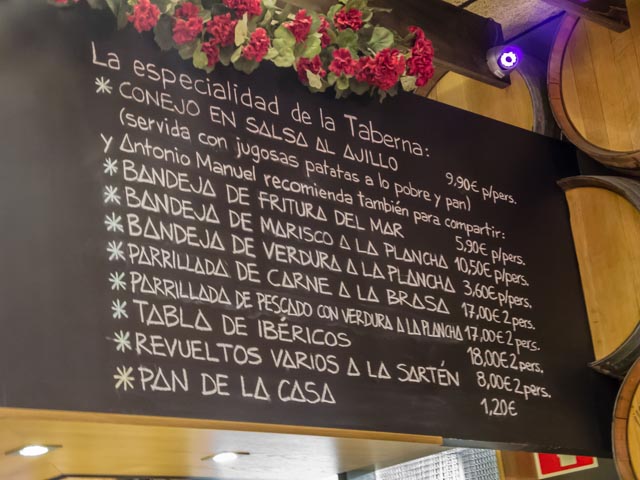 La especialidad de la Taberna:
* CONEJO EN SALSA AL AJILLO 9,90€ p/pers.
(servida con jugosas patatas a lo pobre y pan)
y Antonio Manuel recomienda también para compartir:
* BANDEJA DE FRITURA DEL MAR 5,90€ p/pers.
* BANDEJA DE MARISCO A LA PLANCHA 10,50€ p/pers.
* BANDEJA DE VERDURA A LA PLANCHA 3,60€ p/pers.
* PARRILLADA DE CARNE A LA BRASA 17,00€ 2 pers.
* PARRILLADA DE PESCADO CON VERDURA A LA PLANCHA 17,00€ 2 pers.
* TABLA DE IBÉRICOS 18,00€ 2 pers.
* REVUELTOS VARIOS A LA SARTÉN 8,00€ 2 pers.
* PAN DE LA CASA 1,20€